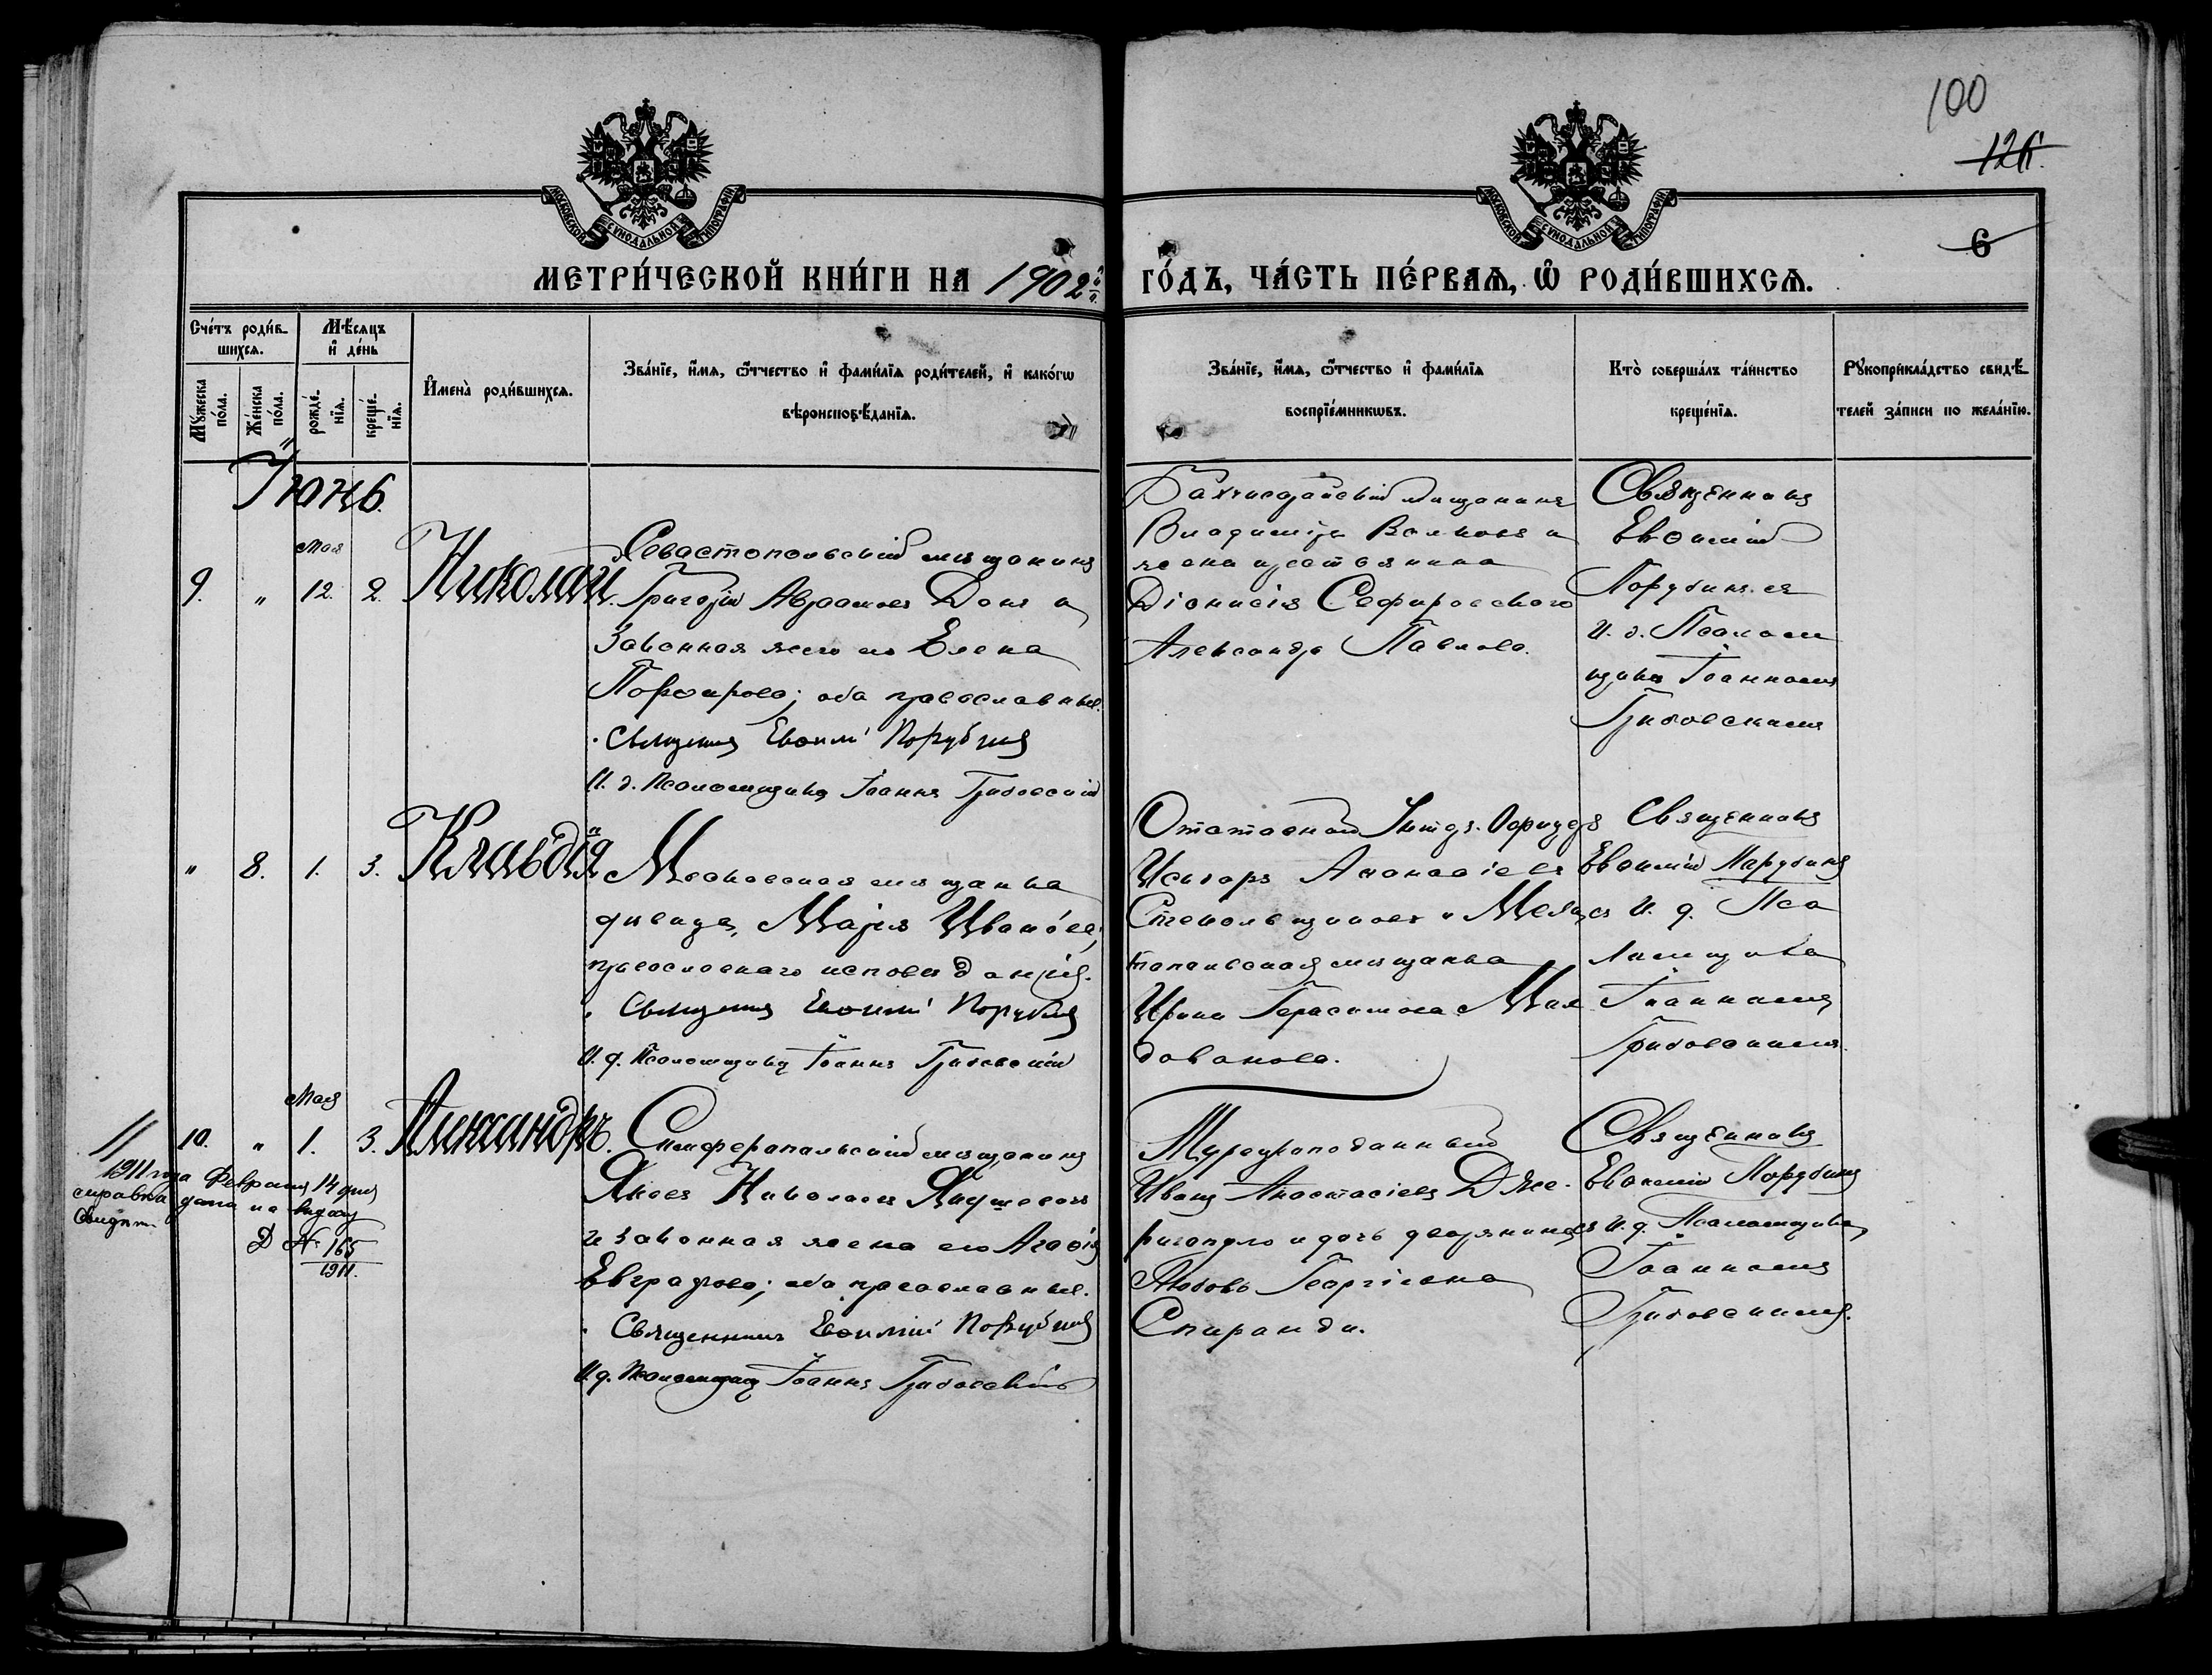 100
126.
6
МОСКОВСКОЙ СѴНОДАЛЬНОЙ ТИПОГРАФІИ
МОСКОВСКОЙ СѴНОДАЛЬНОЙ ТИПОГРАФІИ
МЕТРИ́ЧЕСКОЙ КНИ́ГИ НА 1902й
ГО́ДЪ, ЧА́СТЬ ПЕ́РВАѦ, Ѡ҆ РОДИ́ВШИХСѦ.
Сче́тъ роди́в-
шихсѧ.
Мѣ́сѧцъ
и҆ де́нь
Мꙋ́жеска
по́ла.
Же́нска
по́ла.
рожде́-
нїѧ.
креще́-
нїѧ.
И҆мена̀ роди́вшихсѧ.
Зва́нїе, и҆́мѧ, ѻ҆́тчество и҆ фами́лїѧ роди́телей, и҆ како́гѡ
вѣроисповѣ́данїѧ.
Зва́нїе, и҆́мѧ, ѻ҆́тчество и҆ фами́лїѧ
воспрїе́мникѡвъ.
Кто̀ соверша́лъ та́инство
креще́нїѧ.
Рꙋкоприкла́дство свидѣ́-
телей за́писи по жела́нїю.
Іюнь.
Мая
9. " 12. 2. Николай.
Севастопольскій мѣщанинъ
Григорій Авраамовъ Донъ и
Законная жена его Елена
Порфирова; оба православные.
Священникъ Евѳимій Порубинъ
И. д. Псаломщика Іоаннъ Грибовскій
Бахчисарайскій мѣщанинъ
Владиміръ Волковъ и
жена крестьянина
Діонисія Сефировскаго
Александра Павлова.
Священникъ
Евѳимій
Порубинъ съ
И. д. Псалом
щика Іоанномъ
Грибовскимъ
" 8. 1. 3. Клавдія
Московская мѣщанка
дѣвица, Марія Иванова,
православнаго исповѣданія.
Священникъ Евѳимій Порубинъ
И. д. Псаломщика Іоаннъ Грибовскій
Отставной Унтер. Офицеръ
Ананасіевъ
и Мели
топольская мѣщанка
Ирина Герасимова Мал
дованова.
Священникъ
Евѳимій Порубинъ
съ И. д. Пса
ломщика
Іоанномъ
Грибовскимъ.
Мая
10. " 1. 3. Александръ.
Симферопольскій мѣщанинъ
Яковъ Николаевъ
и Законная жена его Агаѳія
Евграфова; оба православные.
Священникъ Евѳимій Порубинъ
И. д. Псаломщика Іоаннъ Грибовскій
Турецкоподанный
Иванъ Анастасіевъ Дже-
ригопуло и дочь дворянина
Любовь Георгіевна
Спиранди.
Священникъ
Евѳимій Порубинъ
съ И. д. Псаломщика
Іоанномъ
Грибовскимъ.
1911 года Февраля 14 дня
справка дана на выдачу
свидѣт.
Д № 165
1911.